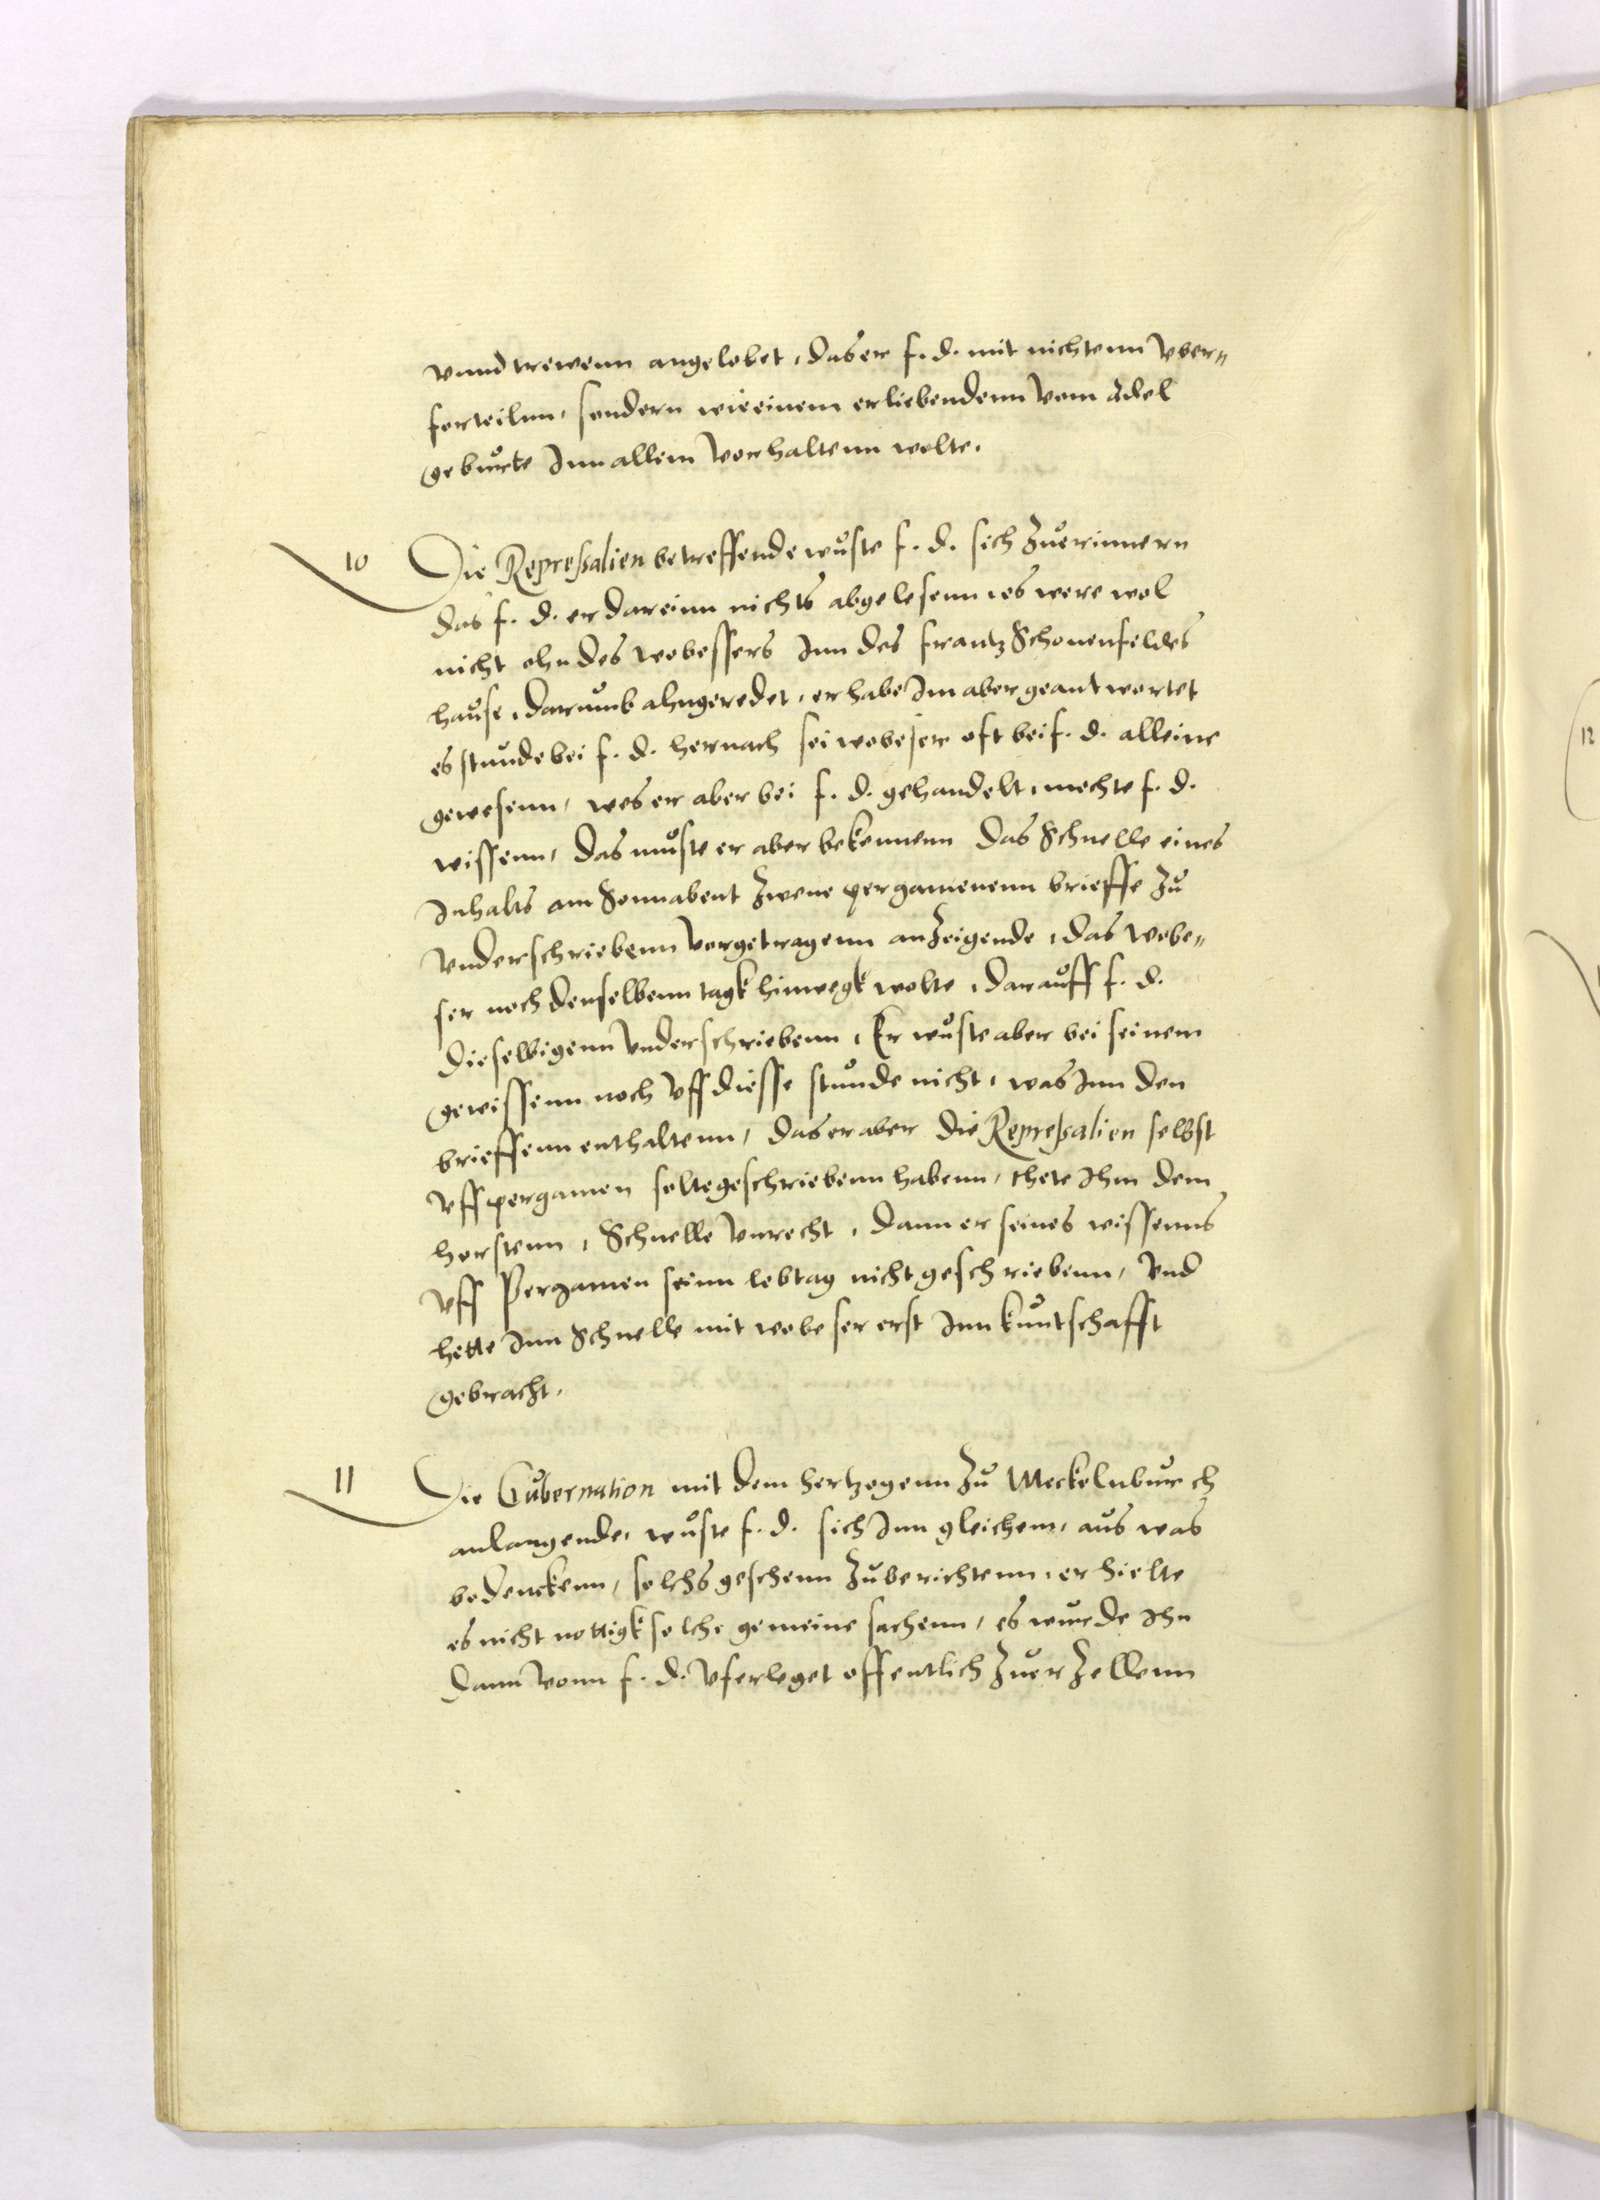 vnnd trewenn angelobet, das er f. d. mit nichtenn vber-
forteilnn, sondern wie einem erliebendenn vom Adel
geburte Inn allem vorhaltenn wolte.
10 Die Repressalien betreffende wuste f. d. sich zu erinnern
das f. d. er darein nichts abgelesenn, es were wol
nicht ohn des wobessers Inn des frantz Schonenfeldes
hause, darumb ahngeredet, er habe Im aber geantwortet
es stunde bei f. d. hernach sei wobeser oft bei f. d. alleine
gewesenn, wes er aber bei f. d. gehandelt, mochte f. d.
wissenn, das muste er aber bekennenn das Schnelle eines
Inhalts am Sonnabent zwene pergamenenn brieffe zu
vnderschriebenn vorgetragenn anzeigende, das wobe-
ser noch denselbenn tagk hinwegk wolte, darauff f. d.
dieselbigenn vnderschriebenn, Er wuste aber bei seinem
gewissenn noch vff diesse stunde nicht, was Inn den
brieffenn enthaltenn, das er aber die Repressalien selbst
vff pergamen solte geschriebenn habenn, thete Ihm dem
horstenn, Schnelle vnrecht, dann er seines wissenns
vff Pergamen sein lebtag nicht geschriebenn, vnd
hette Inn Schnelle mit wobeser erst Inn kuntschafft
gebracht.
11 Die Gubernation mit dem hertzogenn zu Meckelnburch
anlangende, wuste f. d. sich Inn gleichem, aus was
bedenckenn, solchs geschenn zu berichtenn, er hielte
es nicht nottigk solche gemeine sachenn, es wurde Ihn
dann vonn f. d. vferleget offentlich zu erzellenn
12